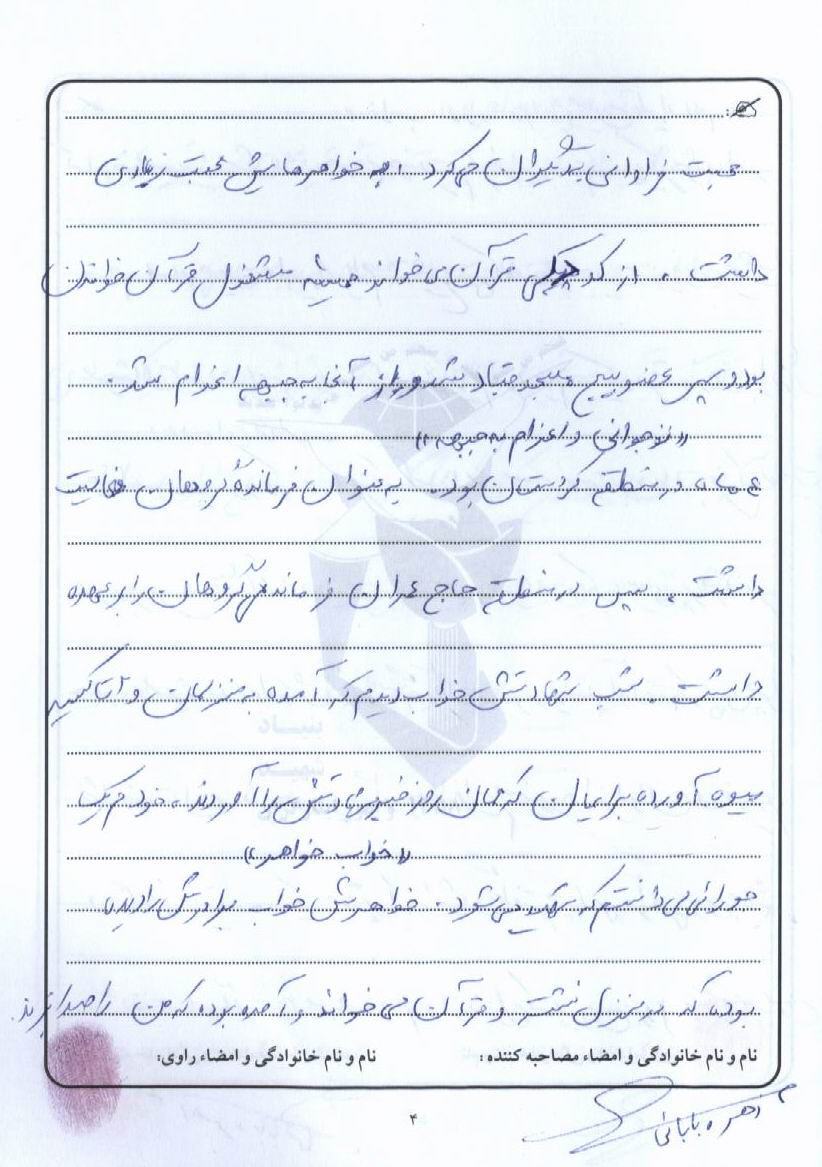 محبت فراوانی به دیگران می‌کرد . به خواهرهایش محبت زیادی
داشت . از کودکی قرآن می خواند همیشه مشغول قرآن خواندن
بود و سپس عضو بسیج مسجد قباد شد و از آنجا به جبهه اعزام شد.
«نوجوانی و اعزام به جبهه»
ماه در منطقه کردستان بود. به عنوان فرمانده گروهان فعالیت
داشت . سپس در منطقه حاج عمران فرماندهی گروهان را بر عهده
داشت . شب شهادتش خواب دیدم که آمده به منزلمان و تا کیسه
میوه آورده برایمان که همان روز خبر شهادتش را آوردند. خودم یک
«خواب خواهر»
جورائی می دانستم که شهید می شود . خواهرش خواب برادرش را دیده
بوده که در منزل نشسته و قرآن می خواند و آمده بوده که من را صدا بزند.
نام و نام خانوادگی و امضاء مصاحبه کننده : نام و نام خانوادگی و امضاء راوی:
زهره بابائی
۴